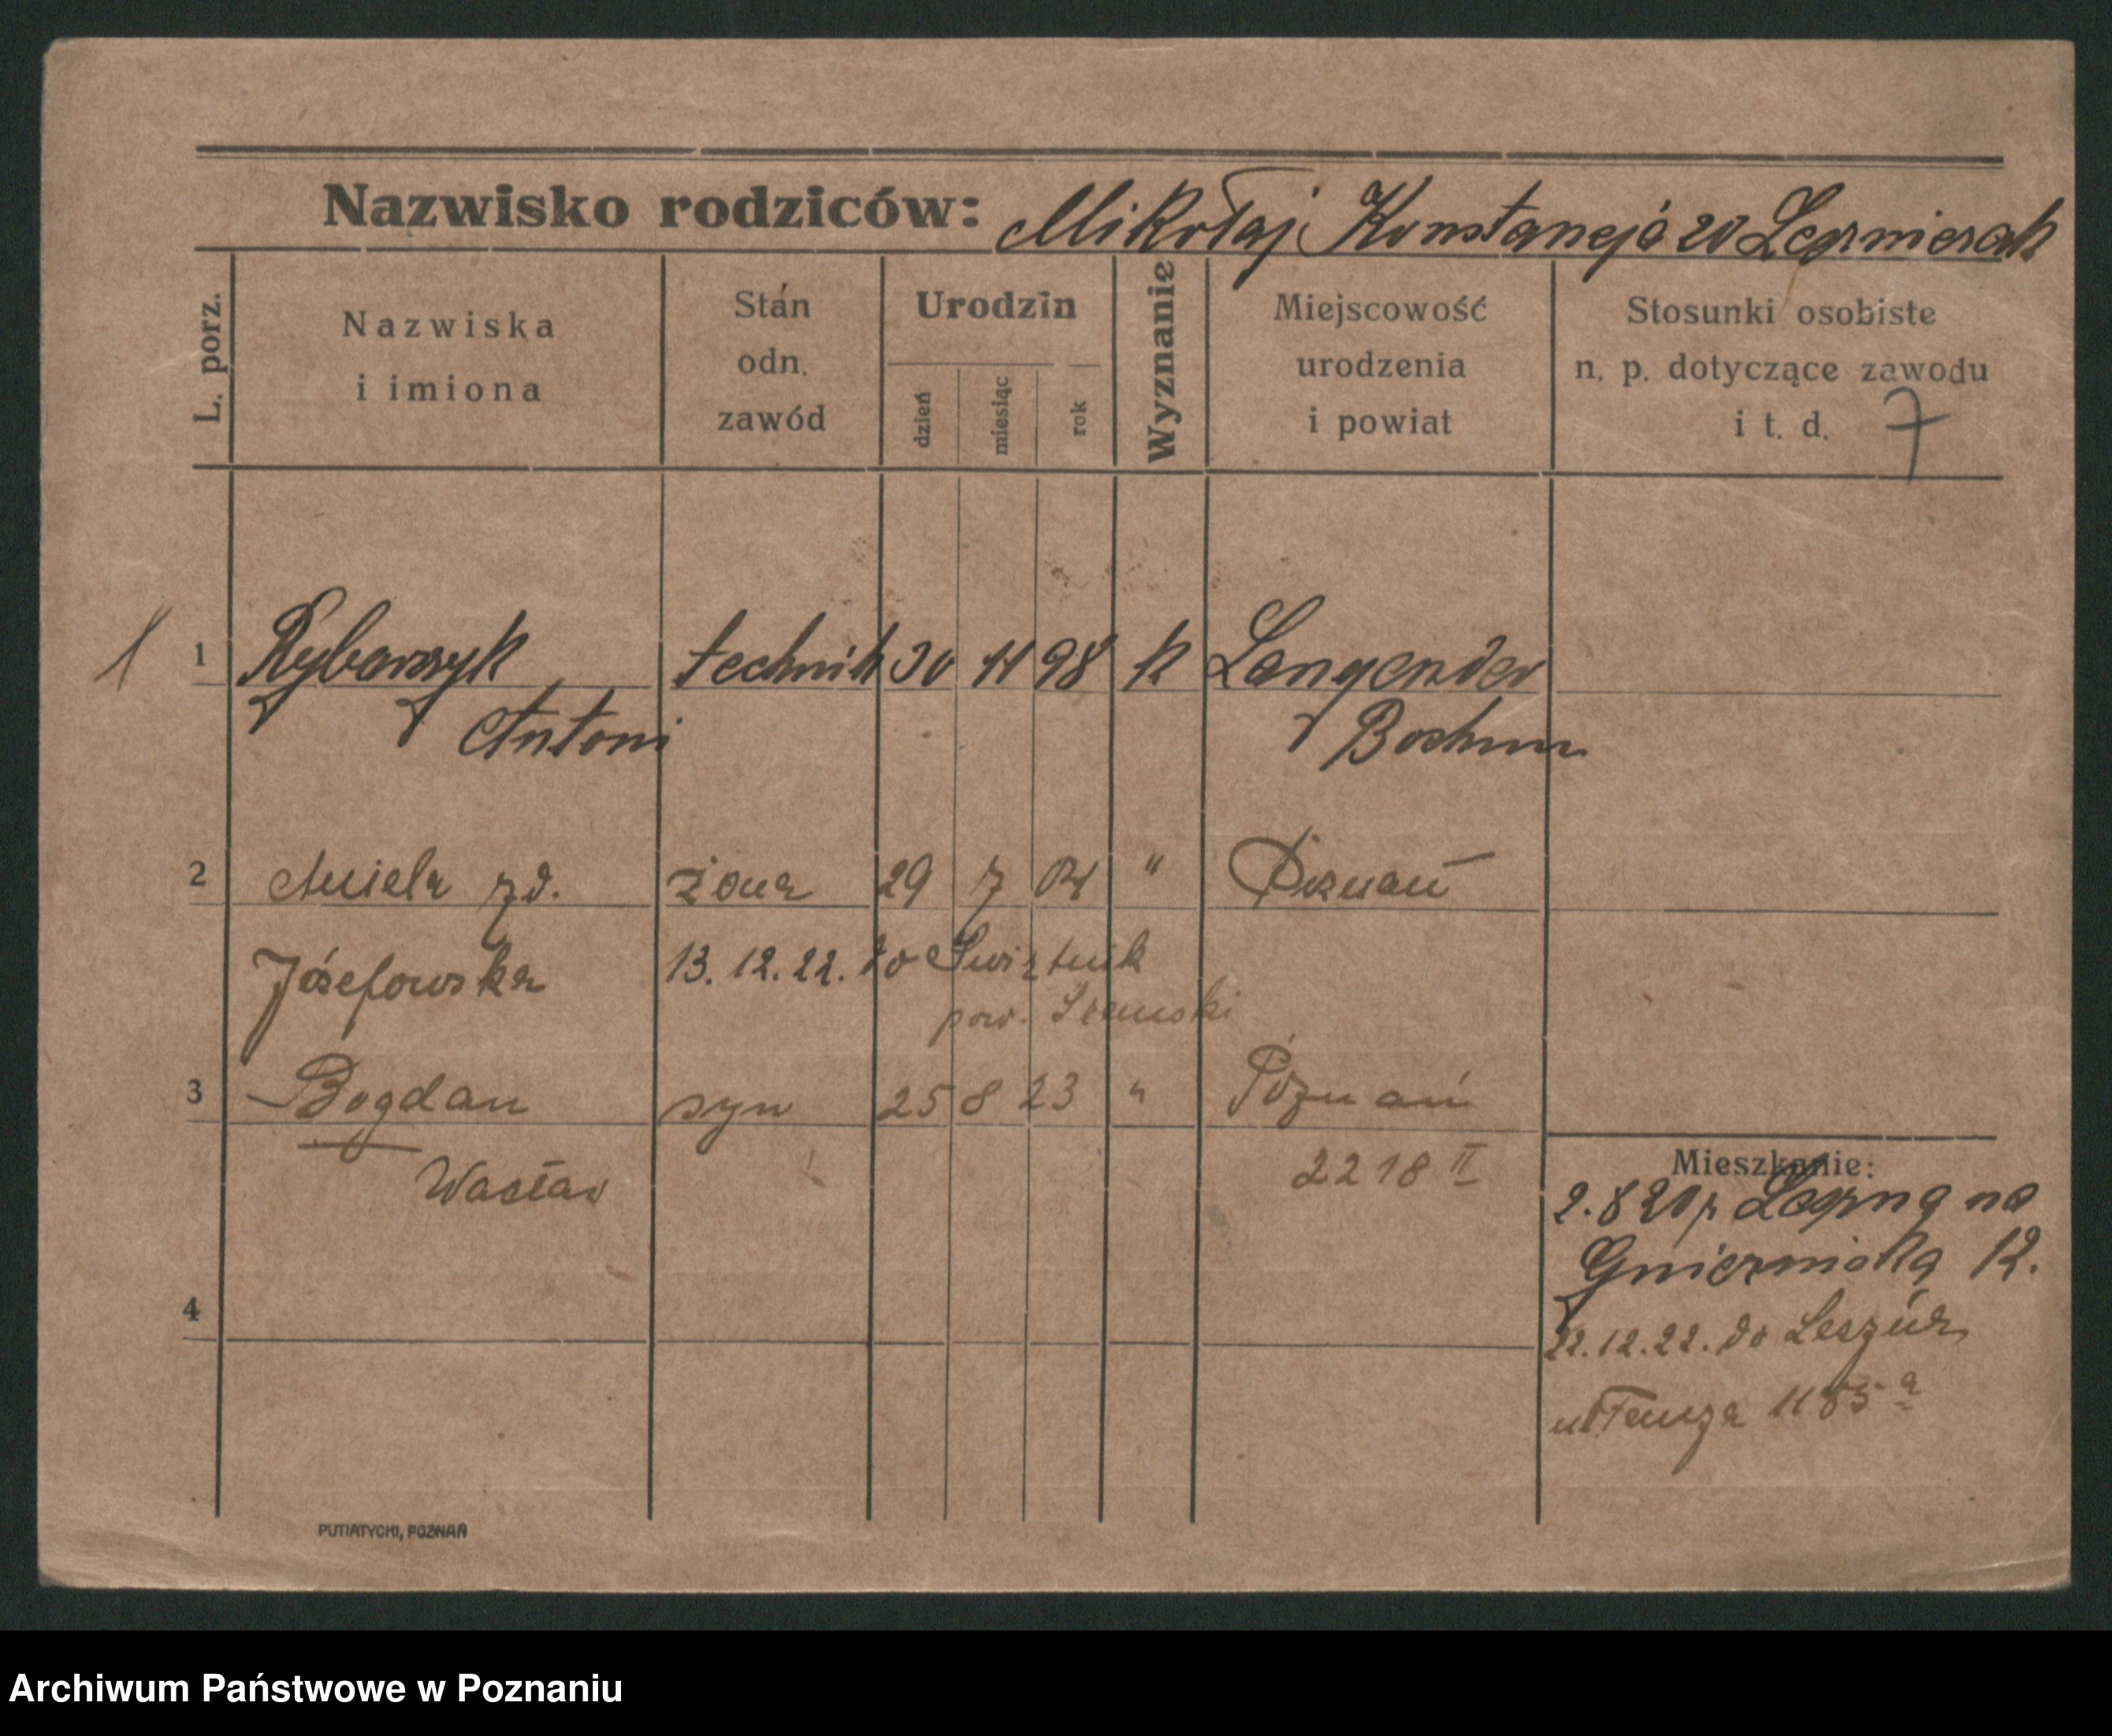 Nazwisko rodziców: Mikołaj Konstancja zd
L. porz.
Nazwiska
i imiona
Stan
odn.
zawód
Urodzin
dzień
miesiąc
rok
Wyznanie
Miejscowość
urodzenia
i powiat
Stosunki osobiste
n. p. dotyczące zawodu
i t. d. 7
1 Rybarczyk technik 30 11 98 k
Antoni Bochum
2 Aniela zd. żona 29 7 " Poznań
Józefowska 13.12.22. do
pow. Śremski
3 Bogdan syn 25 8 23 " Poznań
Wacław 2218 II
4
Mieszkanie:
2.8 na
12.
22.12.22. do
1185 a
PUTIATYCKI, POZNAŃ
Archiwum Państwowe w Poznaniu